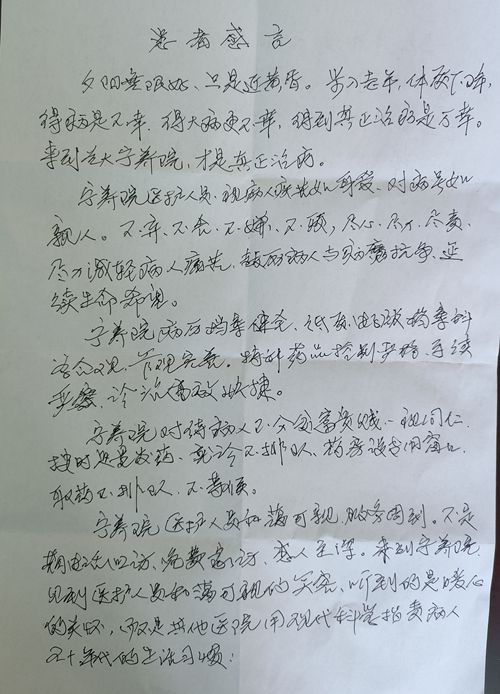 患者感言
夕阳无限好、只是近黄昏。步入老年,体质下降,
得病是不幸,得大病更不幸,得到真正治病是万幸。
来到兰大宁养院,才是真正治病。
宁养院医护人员,视病人疾苦如身受、对病号如
亲人。不弃、不舍、不嫌、不烦,尽心、尽力、尽责、
尽力减轻病人痛苦、鼓励病人与病魔抗争、延
续生命希望。
宁养院病历档案健全、纸质、电子版档案科
客观、管理完善。特殊药品控制严格、手续
严密、诊治高效快捷。
宁养院对待病人不分困富贵贱、一视同仁
按时足量发药、就诊不排队、药房设专用窗口、
取药不排队、不等候。
宁养院医护人员和蔼可亲,服务周到。不定
期电话回访、免费家访、感人至深。来到宁养院
见到医护人员和蔼可亲的笑容、听到的是暖心
的关怀,而不是其他医院用现代科学指责病人
五十年代的生活习惯;